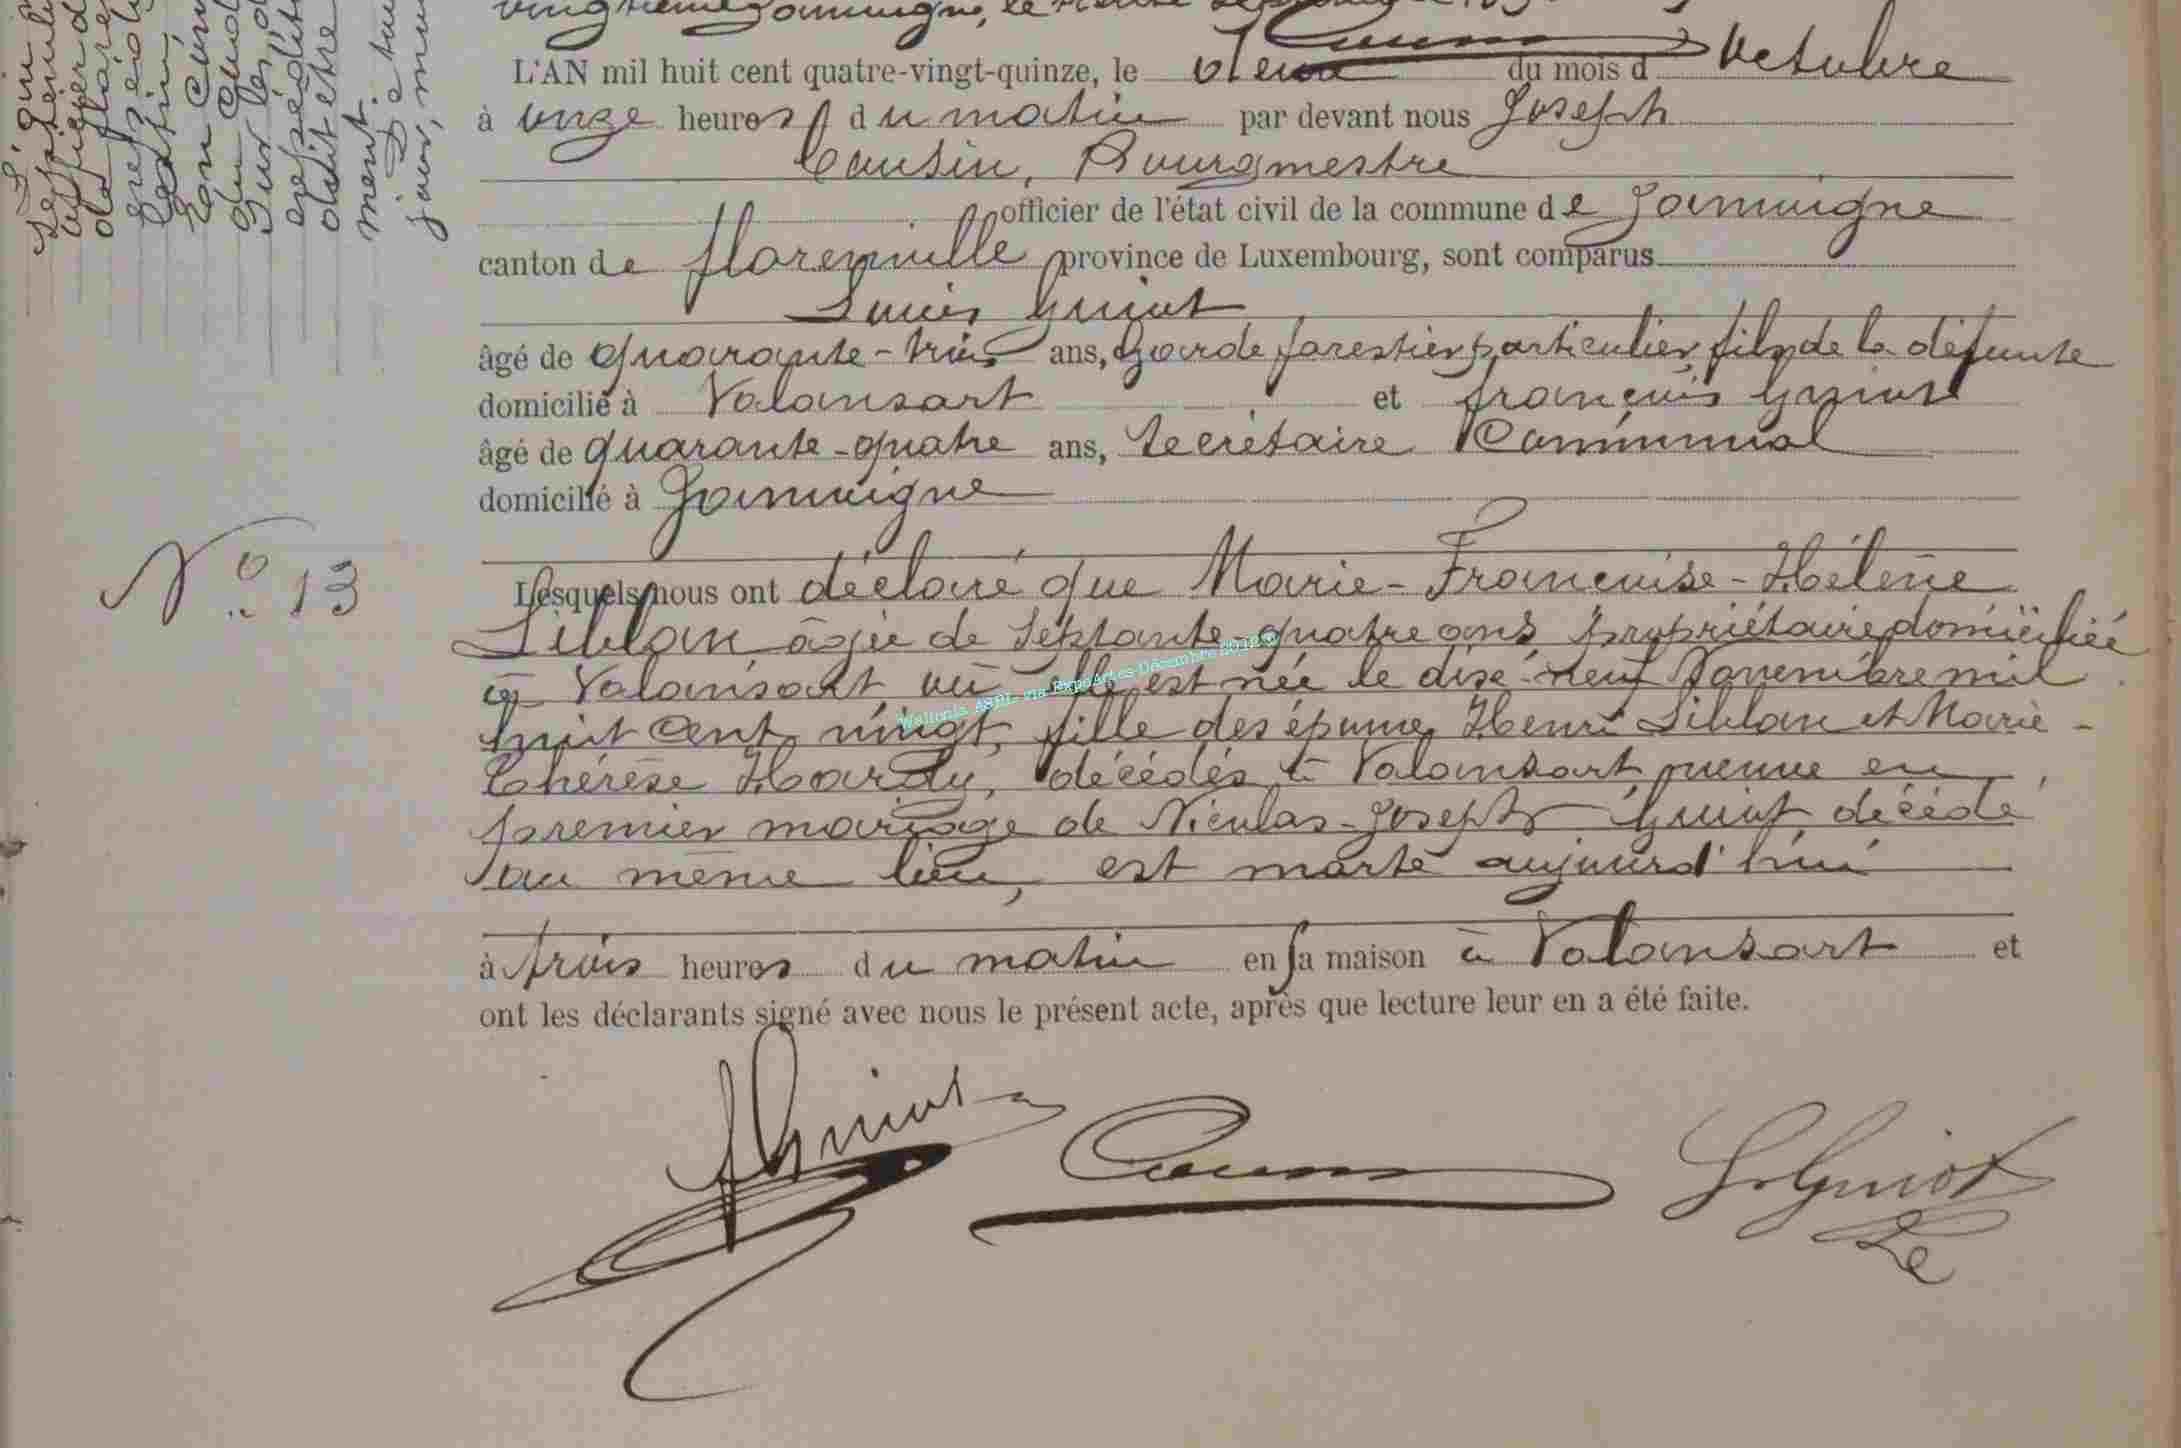 L'AN mil huit cent quatre-vingt-quinze, le deux du mois d Octobre
à onze heures du matin par devant nous Joseph
Cousin, Bourgmestre
officier de l'état civil de la commune de Jamoigne
canton de florenville province de Luxembourg, sont comparus
Louis Guiot
âgé de quarante-trois ans, garde forestier particulier, fils de la défunte
domicilié à Valansart et françois Guiot
âgé de quarante-quatre ans, Secrétaire Communal
domicilié à Jamoigne
N° 13
Lesquels nous ont déclaré que Marie-Françoise-Hélène
Liblan âgée de septante-quatre ans, propriétaire domiciliée
à Valansart, où elle est née le dix-neuf Novembre mil
huit cent vingt, fille des époux Henri Liblan et Marie-
Thérèse Hardy, décédés à Valansart, veuve en
premier mariage de Nicolas-Joseph Guiot, décédé
au même lieu, est morte aujourd'hui
à trois heures du matin en sa maison à Valansart et
ont les déclarants signé avec nous le présent acte, après que lecture leur en a été faite.
Wallonia ASBL via ExpoActes Décembre
fGuiot Cousin LsGuiot